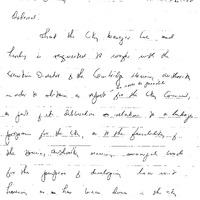 Ordered:
That the City Manager be and
hereby is requested to confer with the
Executive Director of the Cambridge Housing Authority
as soon as possible
in order to obtain a report for the City Council,
as part of its discussion in relation to a linkage
program for the City, as to the feasibility of
the Housing Authority
for the purpose of developing
housing as has been done in the city